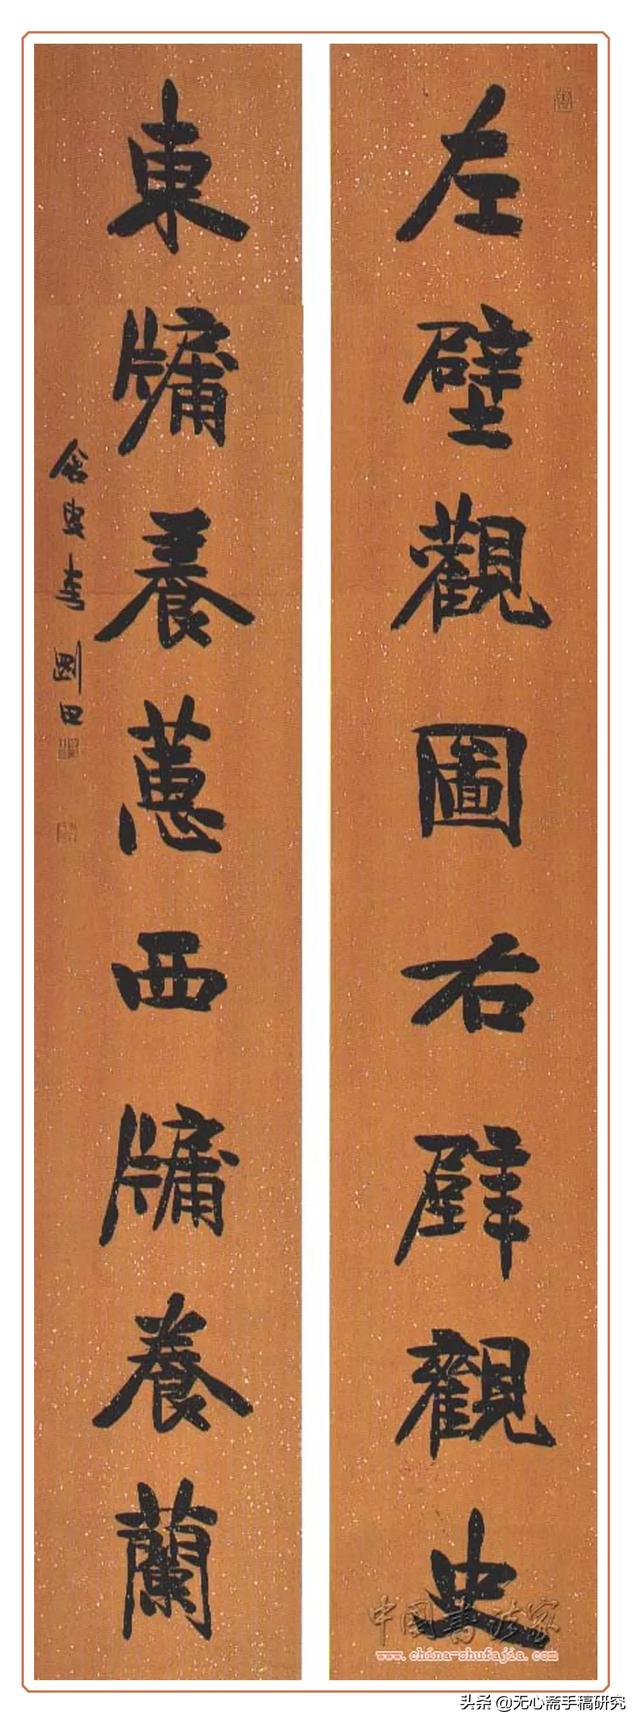 左壁觀圖右壁觀史
東牗養蕙西牗養蘭
中国书法家
www.china-shufajia.com
头条 @无心斋手稿研究